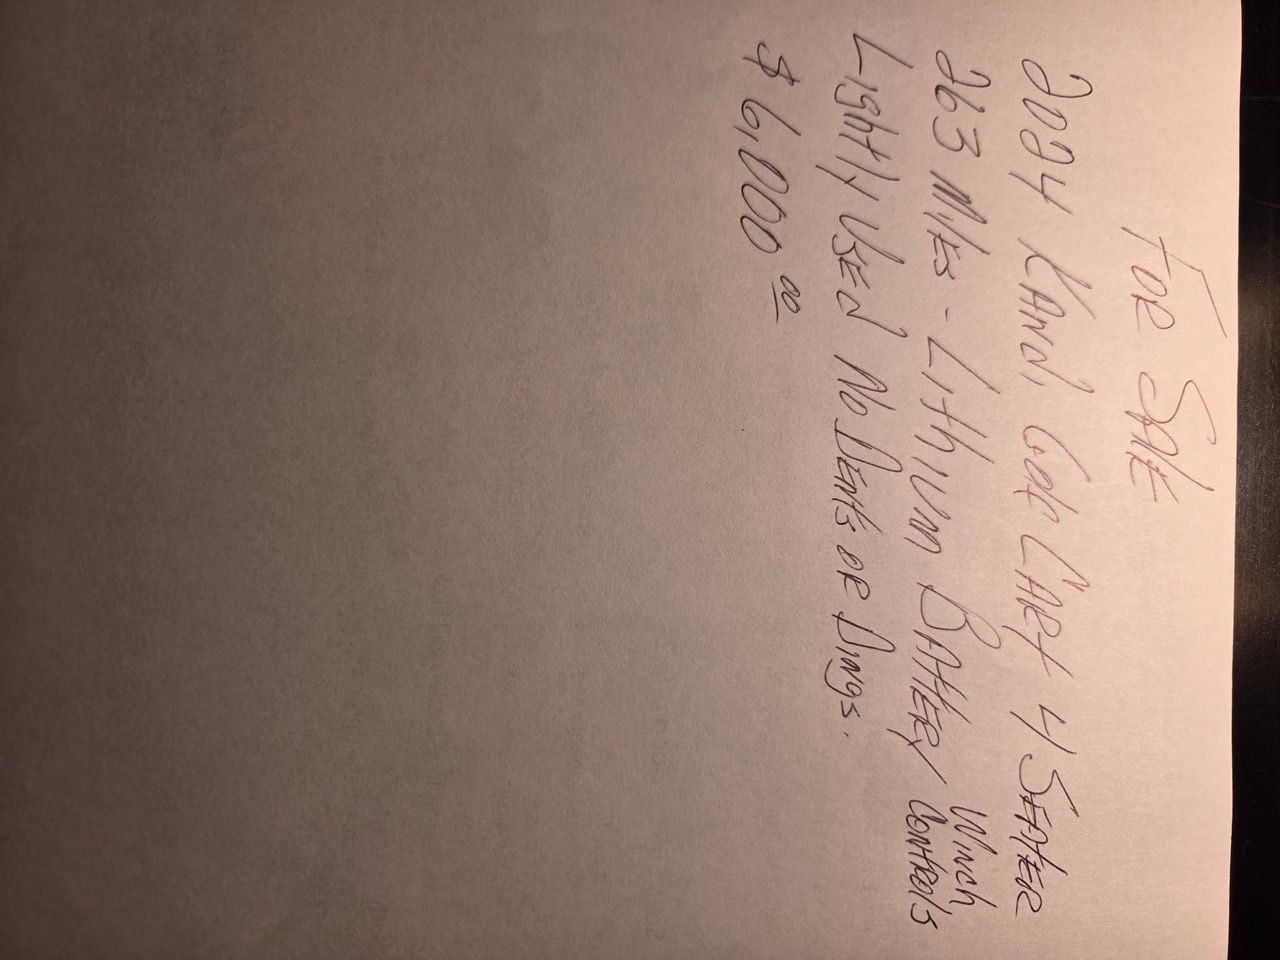 FOR SALE
2024 KANDI GOLF CART 4 SEATER
263 MILES - LITHIUM BATTERY WINCH CONTROLS
LIGHTLY USED NO DENTS OR DINGS.
$6,000.00